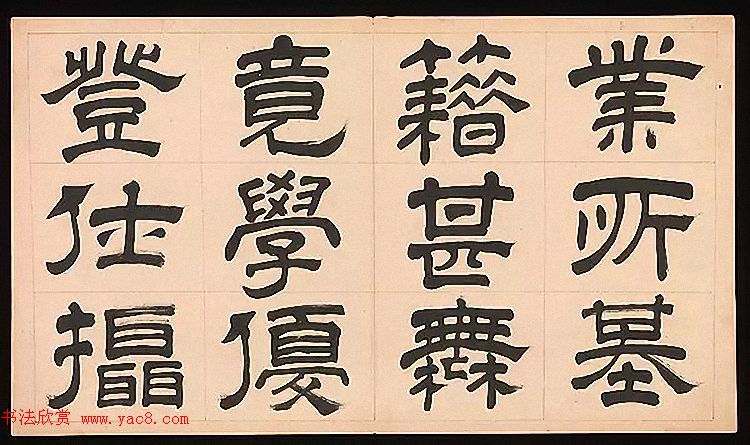 業所基
籍甚無
竟學優
登仕攝
书法欣赏 www.yac8.com